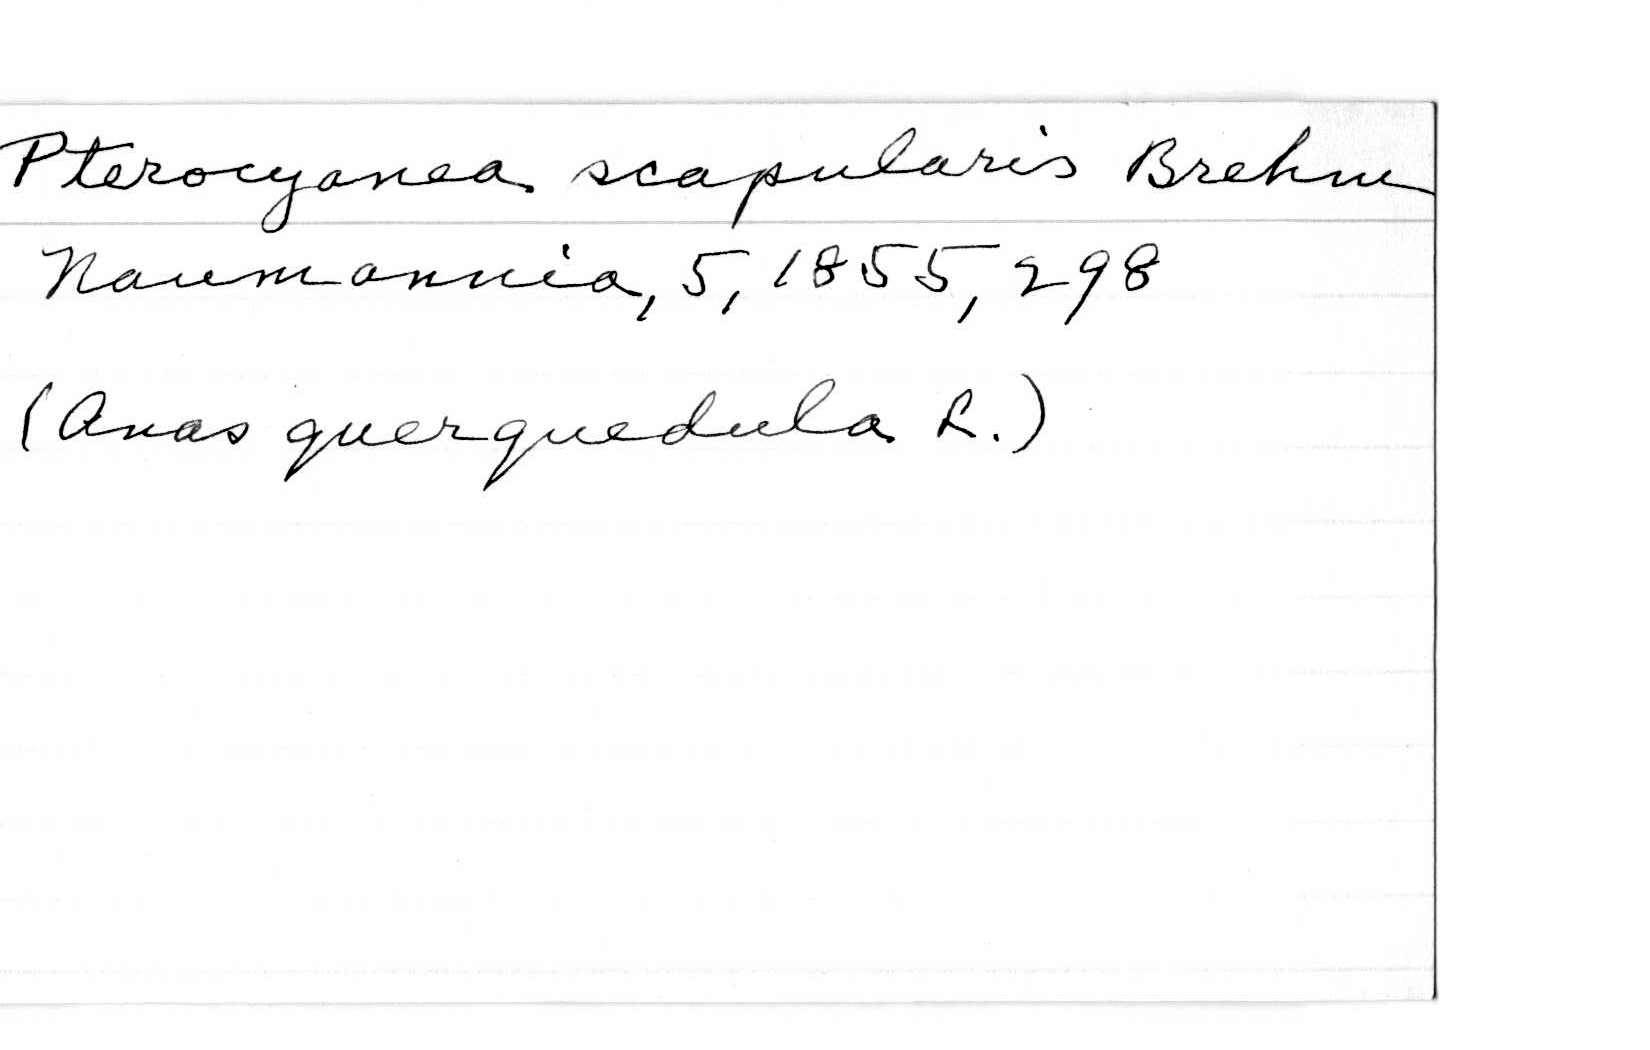 Pterocyanea scapularis Brehm
Naumannia, 5, 1855, 298
(Anas querquedula L.)